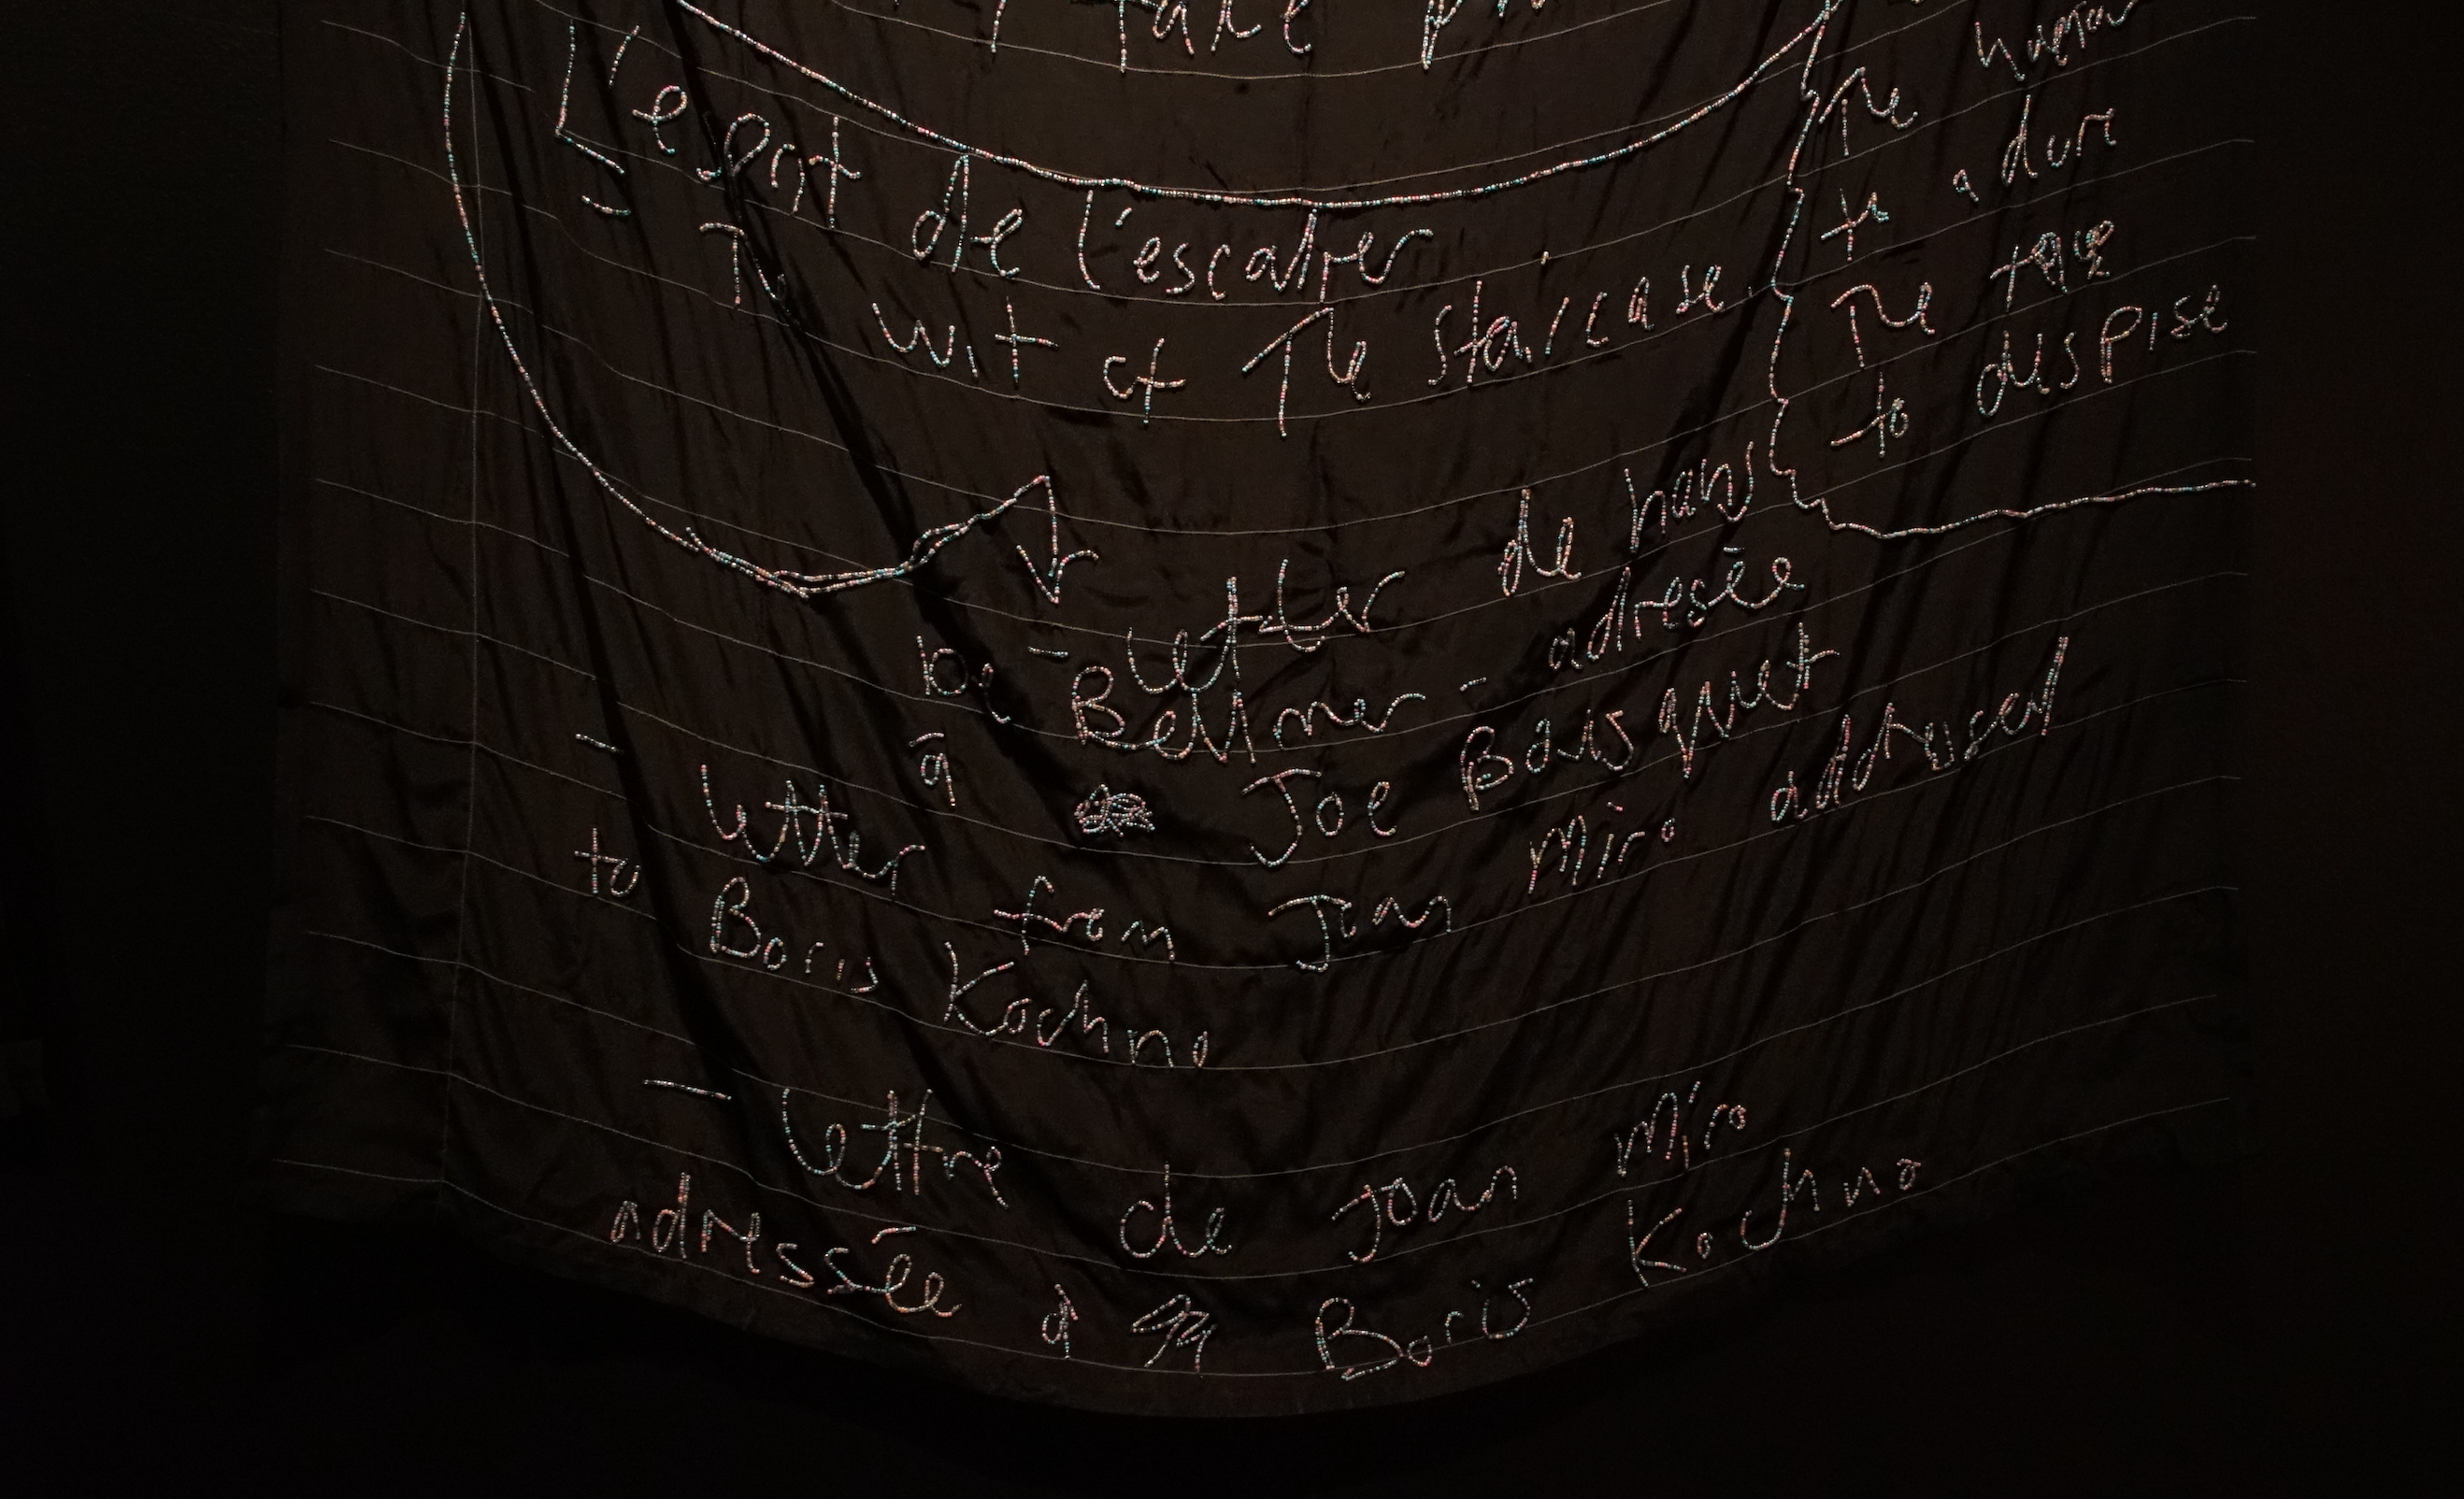 take
L'esprit de l'escalier
The wit of the staircase
The
to adore
The
to despise
- letter de hans
De Bellmer - adresée
à Joe Bousquet
- letter from Joan Miro addressed
to Boris Kochno
- lettre de Joan Miro
adressée à Boris Kochno